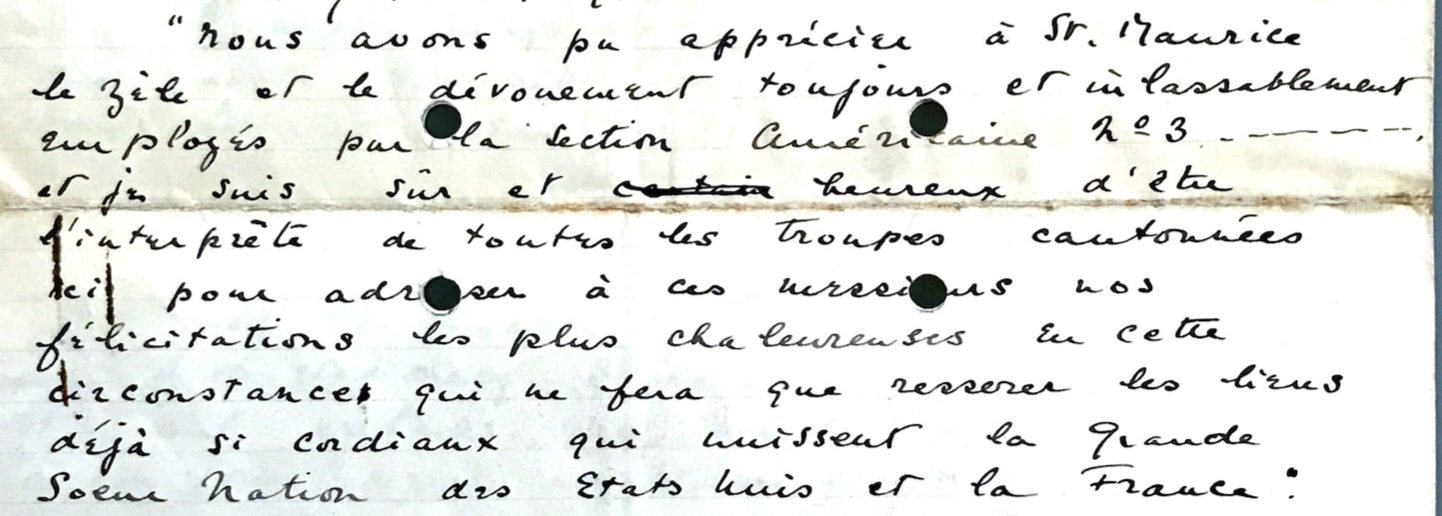 "Nous avons pu apprécier à St. Maurice
le zèle et le dévouement toujours et inlassablement
employés par la section Américaine No 3 . — — — — — .
et je suis sûr et certain heureux d'être
l'interprète de toutes les troupes cantonnées
ici pour adresser à ces messieurs nos
félicitations les plus chaleureuses en cette
circonstance qui ne fera que resserer les liens
déjà si cordiaux qui unissent la Grande
Soeur Nation des Etats Unis et la France".